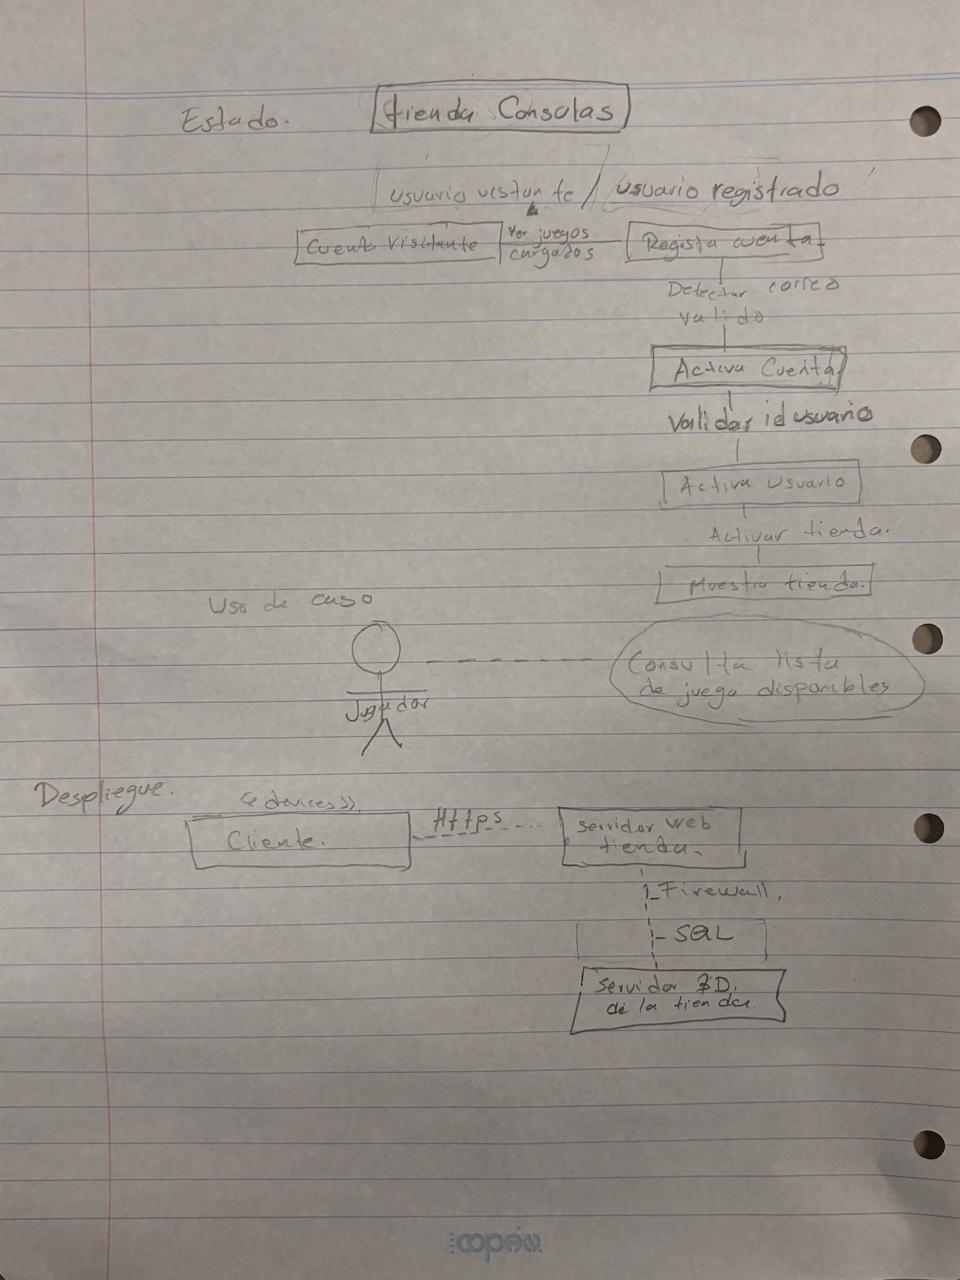 Estado.
tienda Consolas
usuario vistante / usuario registrado
Cuenta Visitante
Ver juegos
cargados
Regista cuenta
Detectar correo
valido
Activa Cuenta
Validar id usuario
Activa usuario
Activar tienda.
Muestra tienda.
Uso de caso
Jugador
Consulta lista
de juego disponibles
Despliegue.
<<devices>>
Cliente.
Https
Servidor web
tienda.
Firewall.
SQL
Servidor BD.
de la tienda.
copán